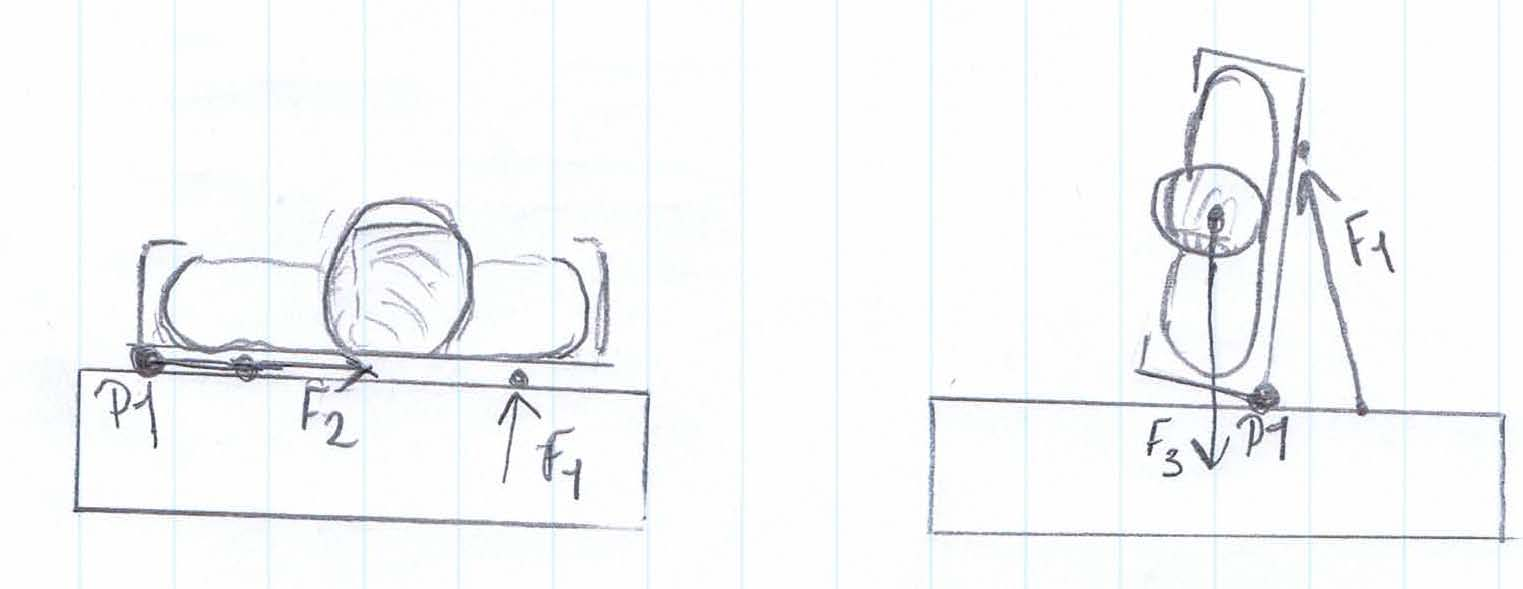 P1
F2
F1
F1
F3
P1